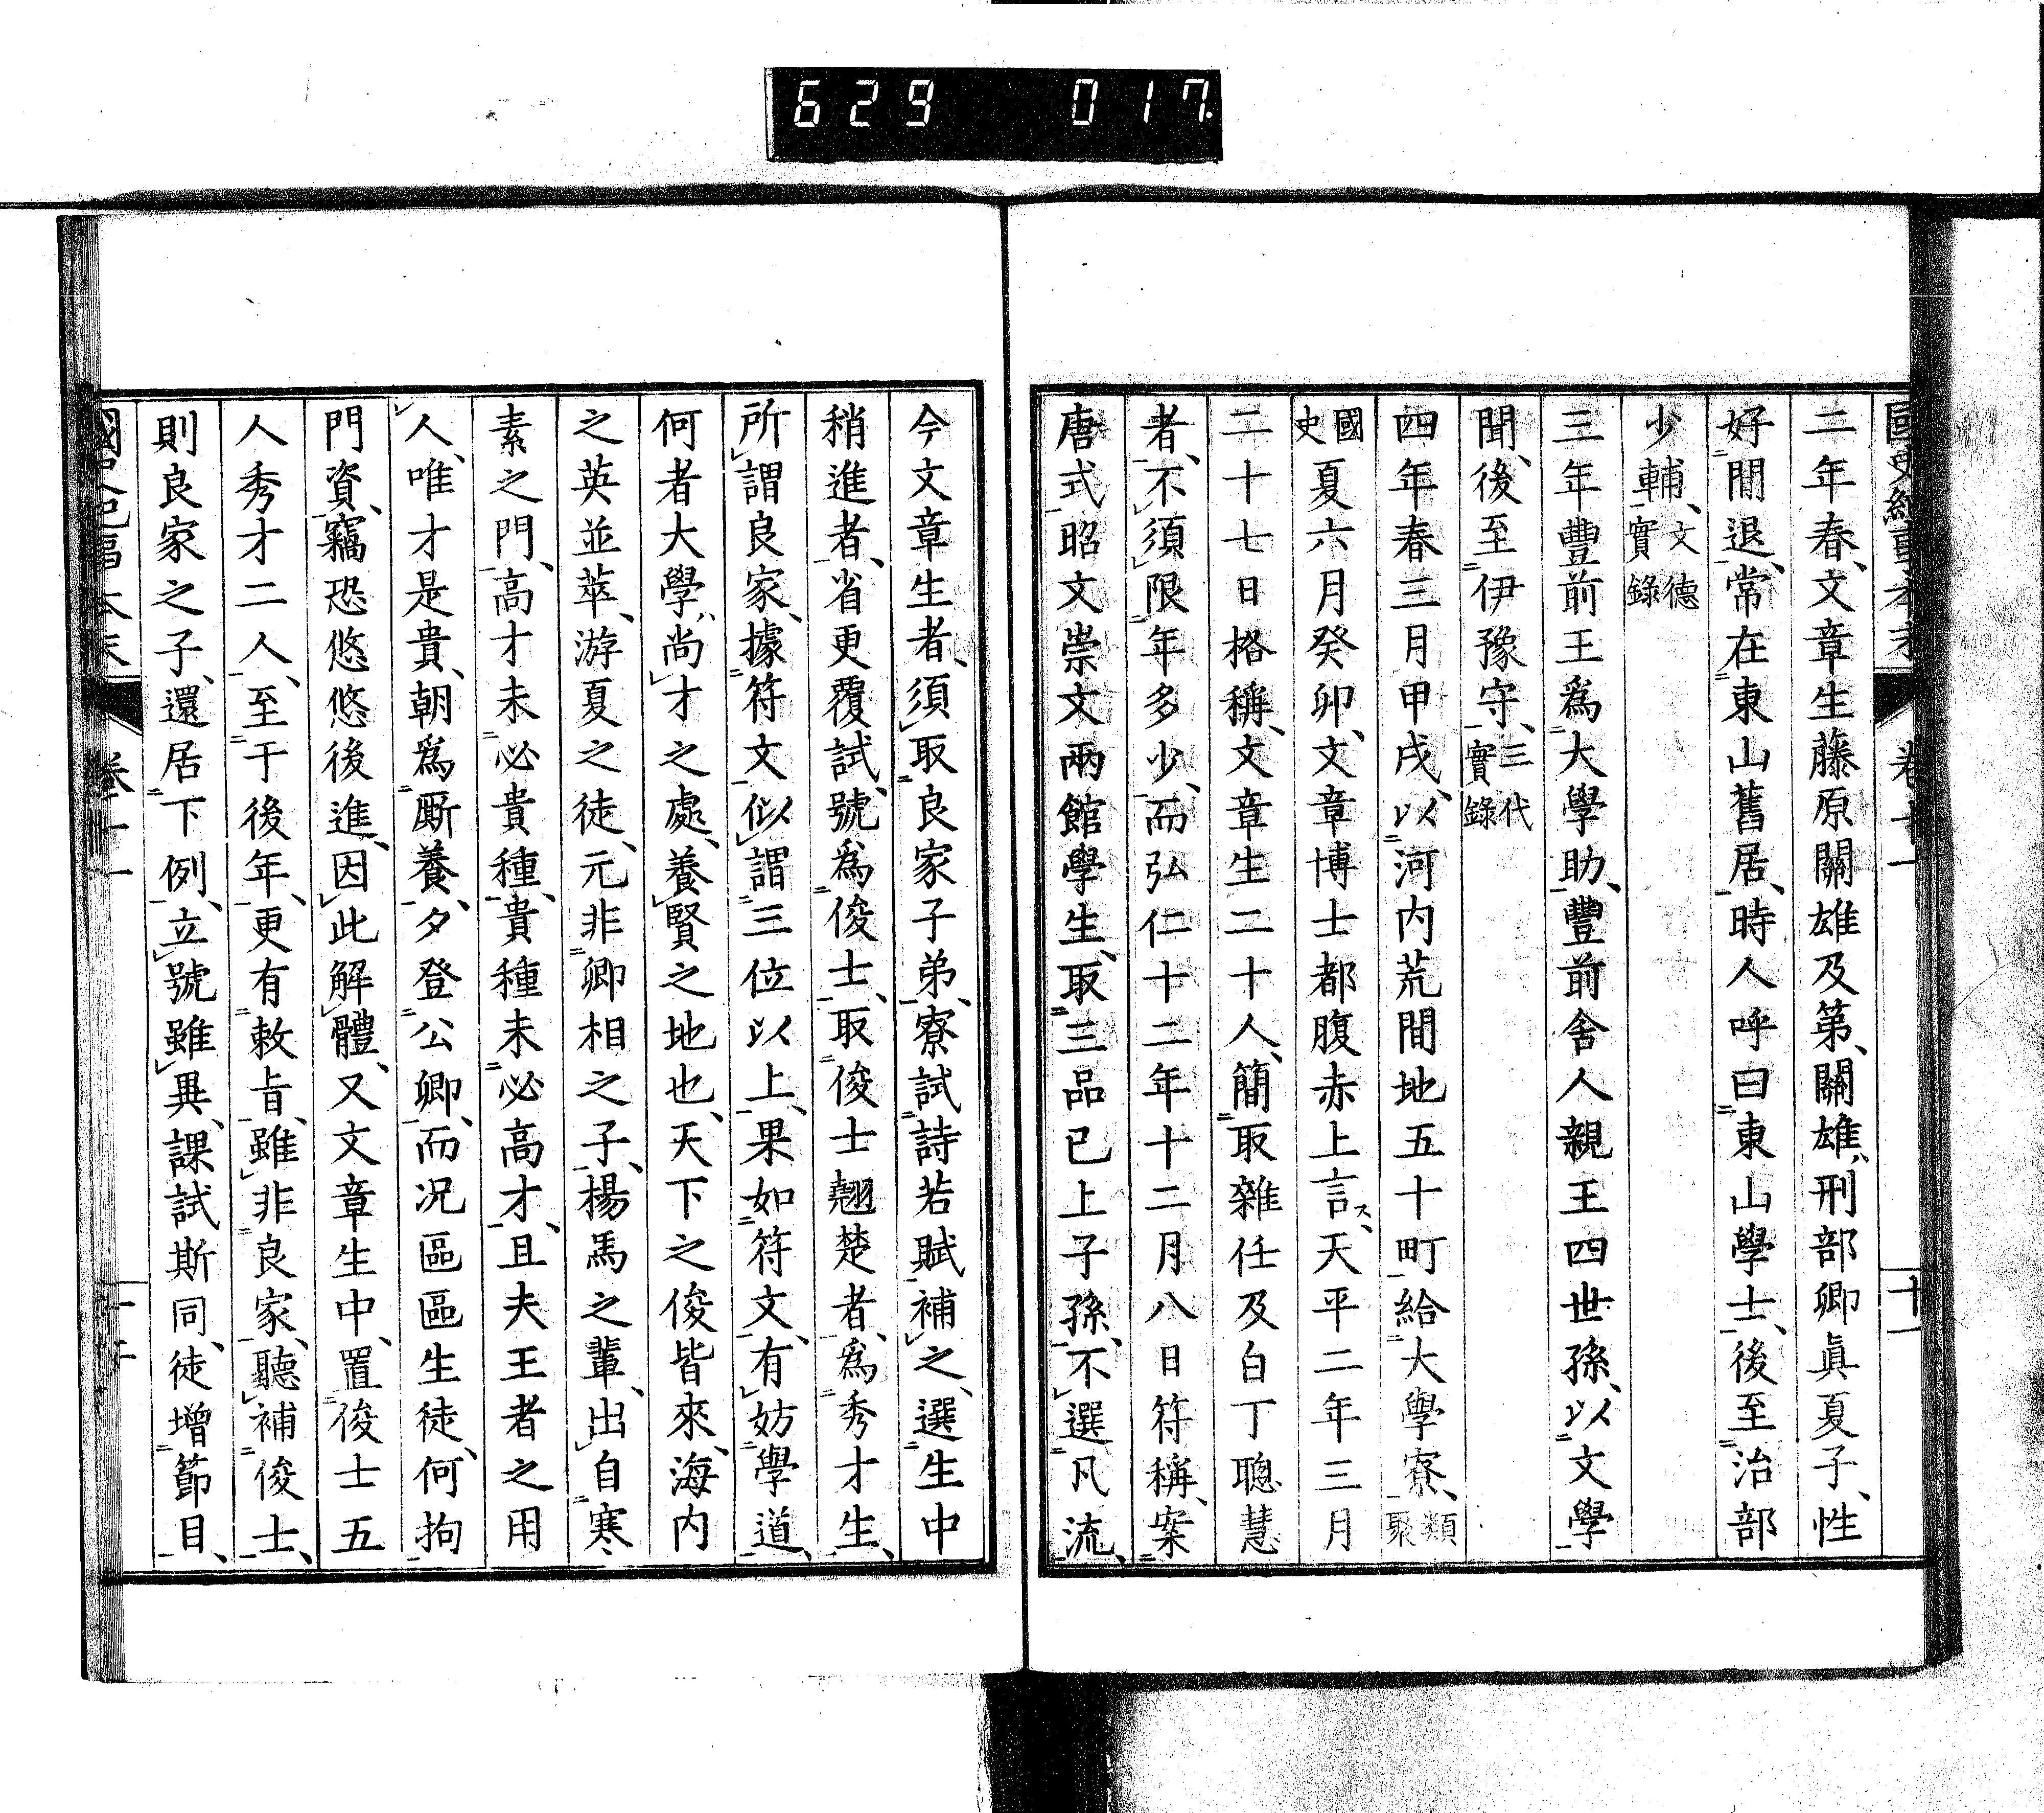 629 017
國史紀事本末 卷十一 十一
二年春、文章生藤原關雄及第、關雄、刑部卿眞夏子、性
好閒退、常在東山舊居、時人呼曰東山學士、後至治部
少輔、文德實錄
三年豐前王爲大學助、豐前舍人親王四世孫、以文學
聞、後至伊豫守、三代實錄
四年春三月甲戌、以河内荒閒地五十町給大學寮、類聚
國史夏六月癸卯、文章博士都腹赤上言ス、天平二年三月
二十七日格稱、文章生二十人、簡取雜任及白丁聰慧
者、不須限年多少、而弘仁十二年十二月八日符稱、案
唐式昭文崇文兩館學生、取三品已上子孫、不選凡流、
今文章生者、須取良家子弟、寮試詩若賦補之、選生中
稍進者、省更覆試、號爲俊士、取俊士翹楚者、爲秀才生、
所謂良家、據符文似謂三位以上、果如符文、有妨學道、
何者大學、尚才之處、養賢之地也、天下之俊皆來、海内
之英並萃、游夏之徒、元非卿相之子、楊馬之輩、出自寒
素之門、高才未必貴種、貴種未必高才、且夫王者之用
人、唯才是貴、朝爲厮養、夕登公卿、而况區區生徒、何拘
門資、竊恐悠悠後進、因此解體、又文章生中、置俊士五
人秀才二人、至于後年、更有敕旨、雖非良家、聽補俊士、
則良家之子、還居下例、立號雖異、課試斯同、徒增節目、
國史紀事本末 卷十一